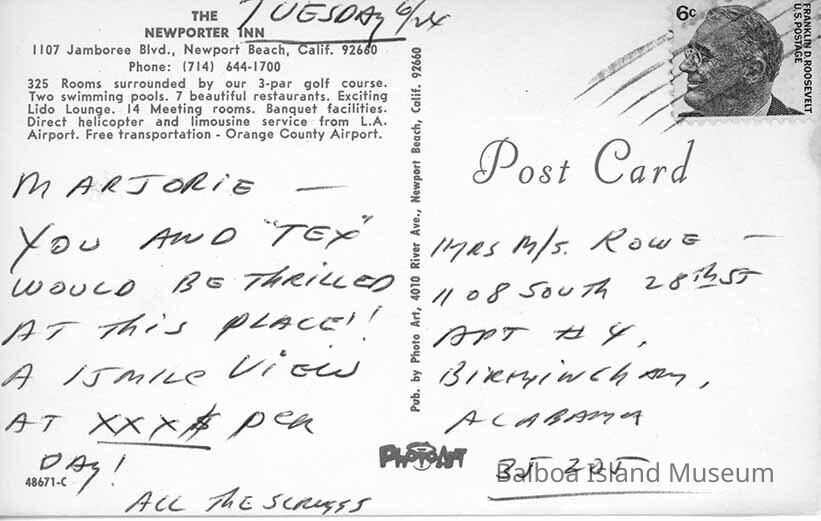 THE
NEWPORTER INN
TUESDAY 6/24
1107 Jamboree Blvd., Newport Beach, Calif. 92660
Phone: (714) 644-1700
325 Rooms surrounded by our 3-par golf course.
Two swimming pools. 7 beautiful restaurants. Exciting
Lido Lounge. 14 Meeting rooms. Banquet facilities.
Direct helicopter and limousine service from L.A.
Airport. Free transportation - Orange County Airport.
MARJORIE —
YOU AND "TEX"
WOULD BE THRILLED
AT THIS PLACE!!
A 15 MILE VIEW
AT XXX$ PER
DAY!
ALL THE SCRUGGS
48671-C
Pub. by Photo Art, 4010 River Ave., Newport Beach, Calif. 92660
PHOTO ART
6c
FRANKLIN D. ROOSEVELT
U.S. POSTAGE
Post Card
MRS M/S. ROWE —
1108 SOUTH 28TH ST
APT #4,
BIRMINGHAM,
ALABAMA
35205
Balboa Island Museum